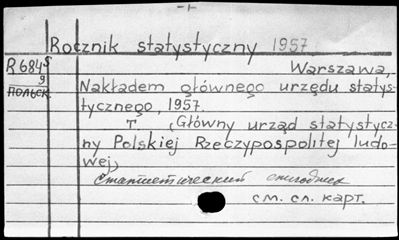 Rocznik statystyczny 1957
R684⁵/9
польск.
Warszawa,
Nakładem głównego urzędu statys-
tycznego, 1957.
T. , (Główny urząd statystycz-
ny Polskiej Rzeczypospolitej ludo-
wej)
Статистический ежегодник
см. сл. карт.